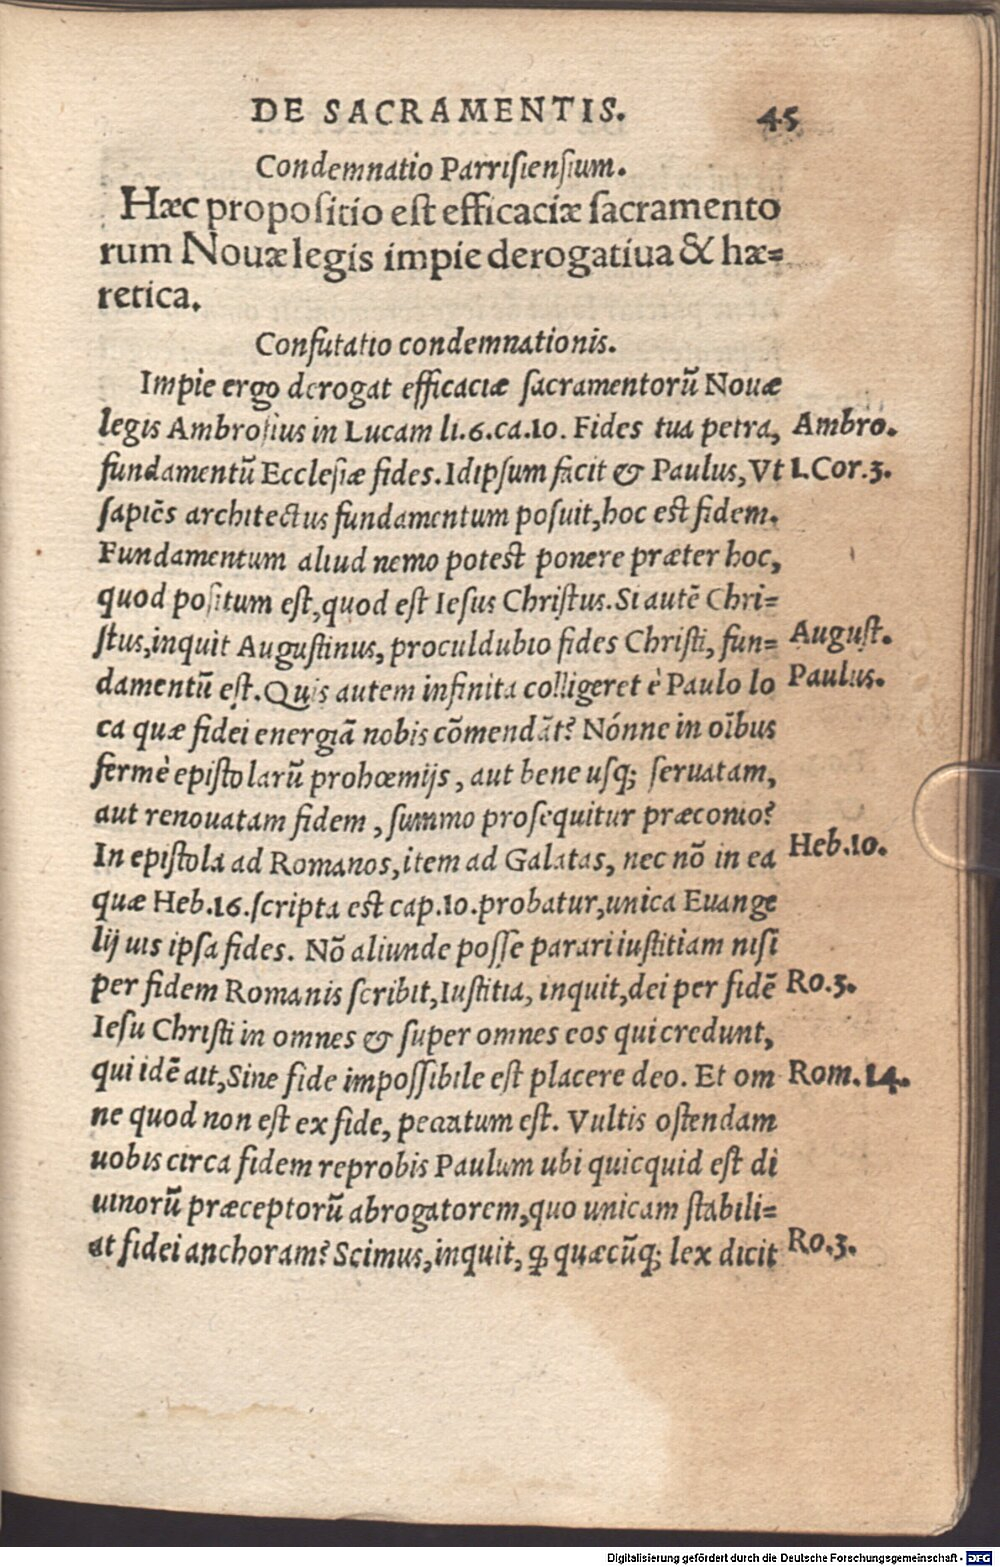 DE SACRAMENTIS. 45
Condemnatio Parrisiensium.
Hæc propositio est efficaciæ sacramento
rum Nouæ legis impie derogatiua & hæ=
retica.
Confutatio condemnationis.
Impie ergo derogat efficaciæ sacramentorũ Nouæ
legis Ambrosius in Lucam li.6.ca.10. Fides tua petra, Ambro.
fundamentũ Ecclesiæ fides. Idipsum facit & Paulus, Vt 1.Cor.3.
sapiẽs architectus fundamentum posuit, hoc est fidem.
Fundamentum aliud nemo potest ponere præter hoc,
quod positum est, quod est Iesus Christus. Si autẽ Chri=
stus, inquit Augustinus, proculdubio fides Christi, fun= August.
damentũ est. Quis autem infinita colligeret è Paulo lo Paulus.
ca quæ fidei energiã nobis cõmendãt? Nónne in oĩbus
fermè epistolarũ prohœmijs, aut bene usq; seruatam,
aut renouatam fidem, summo prosequitur præconio?
In epistola ad Romanos, item ad Galatas, nec nõ in ea Heb.10.
quæ Heb.16. scripta est cap.10. probatur, unica Euange
lij uis ipsa fides. Nõ aliunde posse parari iustitiam nisi
per fidem Romanis scribit, Iustitia, inquit, dei per fidẽ Ro.3.
Iesu Christi in omnes & super omnes eos qui credunt,
qui idẽ ait, Sine fide impossibile est placere deo. Et om Rom.14.
ne quod non est ex fide, peccatum est. Vultis ostendam
uobis circa fidem reprobis Paulum ubi quicquid est di
uinorũ præceptorũ abrogatorem, quo unicam stabili=
at fidei anchoram? Scimus, inquit, ꝙ quæcũq; lex dicit Ro.3.
Digitalisierung gefördert durch die Deutsche Forschungsgemeinschaft - DFG